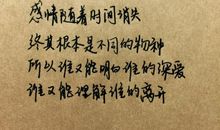 感情随着时间消失
终其根本是不同的物种
所以谁又能明白谁的深爱
谁又能理解谁的离开